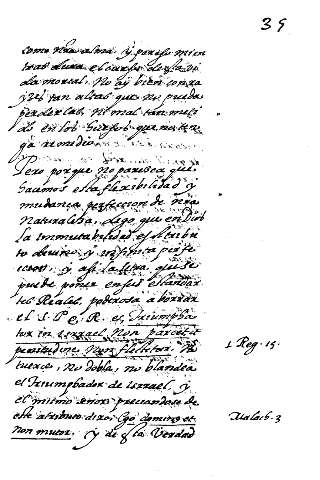 35
como nra alma, y por esso mien
tras dura el curso desta vi
da mortal, No ay bien con ra
yzes tan altas que no pueda
perderlas, Ni mal tan meti
do en los que no ten
ga remedio.
Pero porque no paresca que
hacemos esta flexibilidad y
mudança perfeccion de nra
Naturaleza, digo que en dios
la immutabilidad es atribu
to divino, y infinita perfe
ction, y assi la letra que se
puede poner en sus estandar
tes Reales, poderosa a borrar
el S. P. Q. R. es, Triumpha
tor in Israel Non parcet et
penitudine Non flectetur, No
tuerce, No dobla, no blandea
el Triumphador de Israel, y
el mismo señor preciandose de
este atributo dixo, Ego dominus et
non mutor, y de la Verdad
1 Reg. 15.
Malach. 3